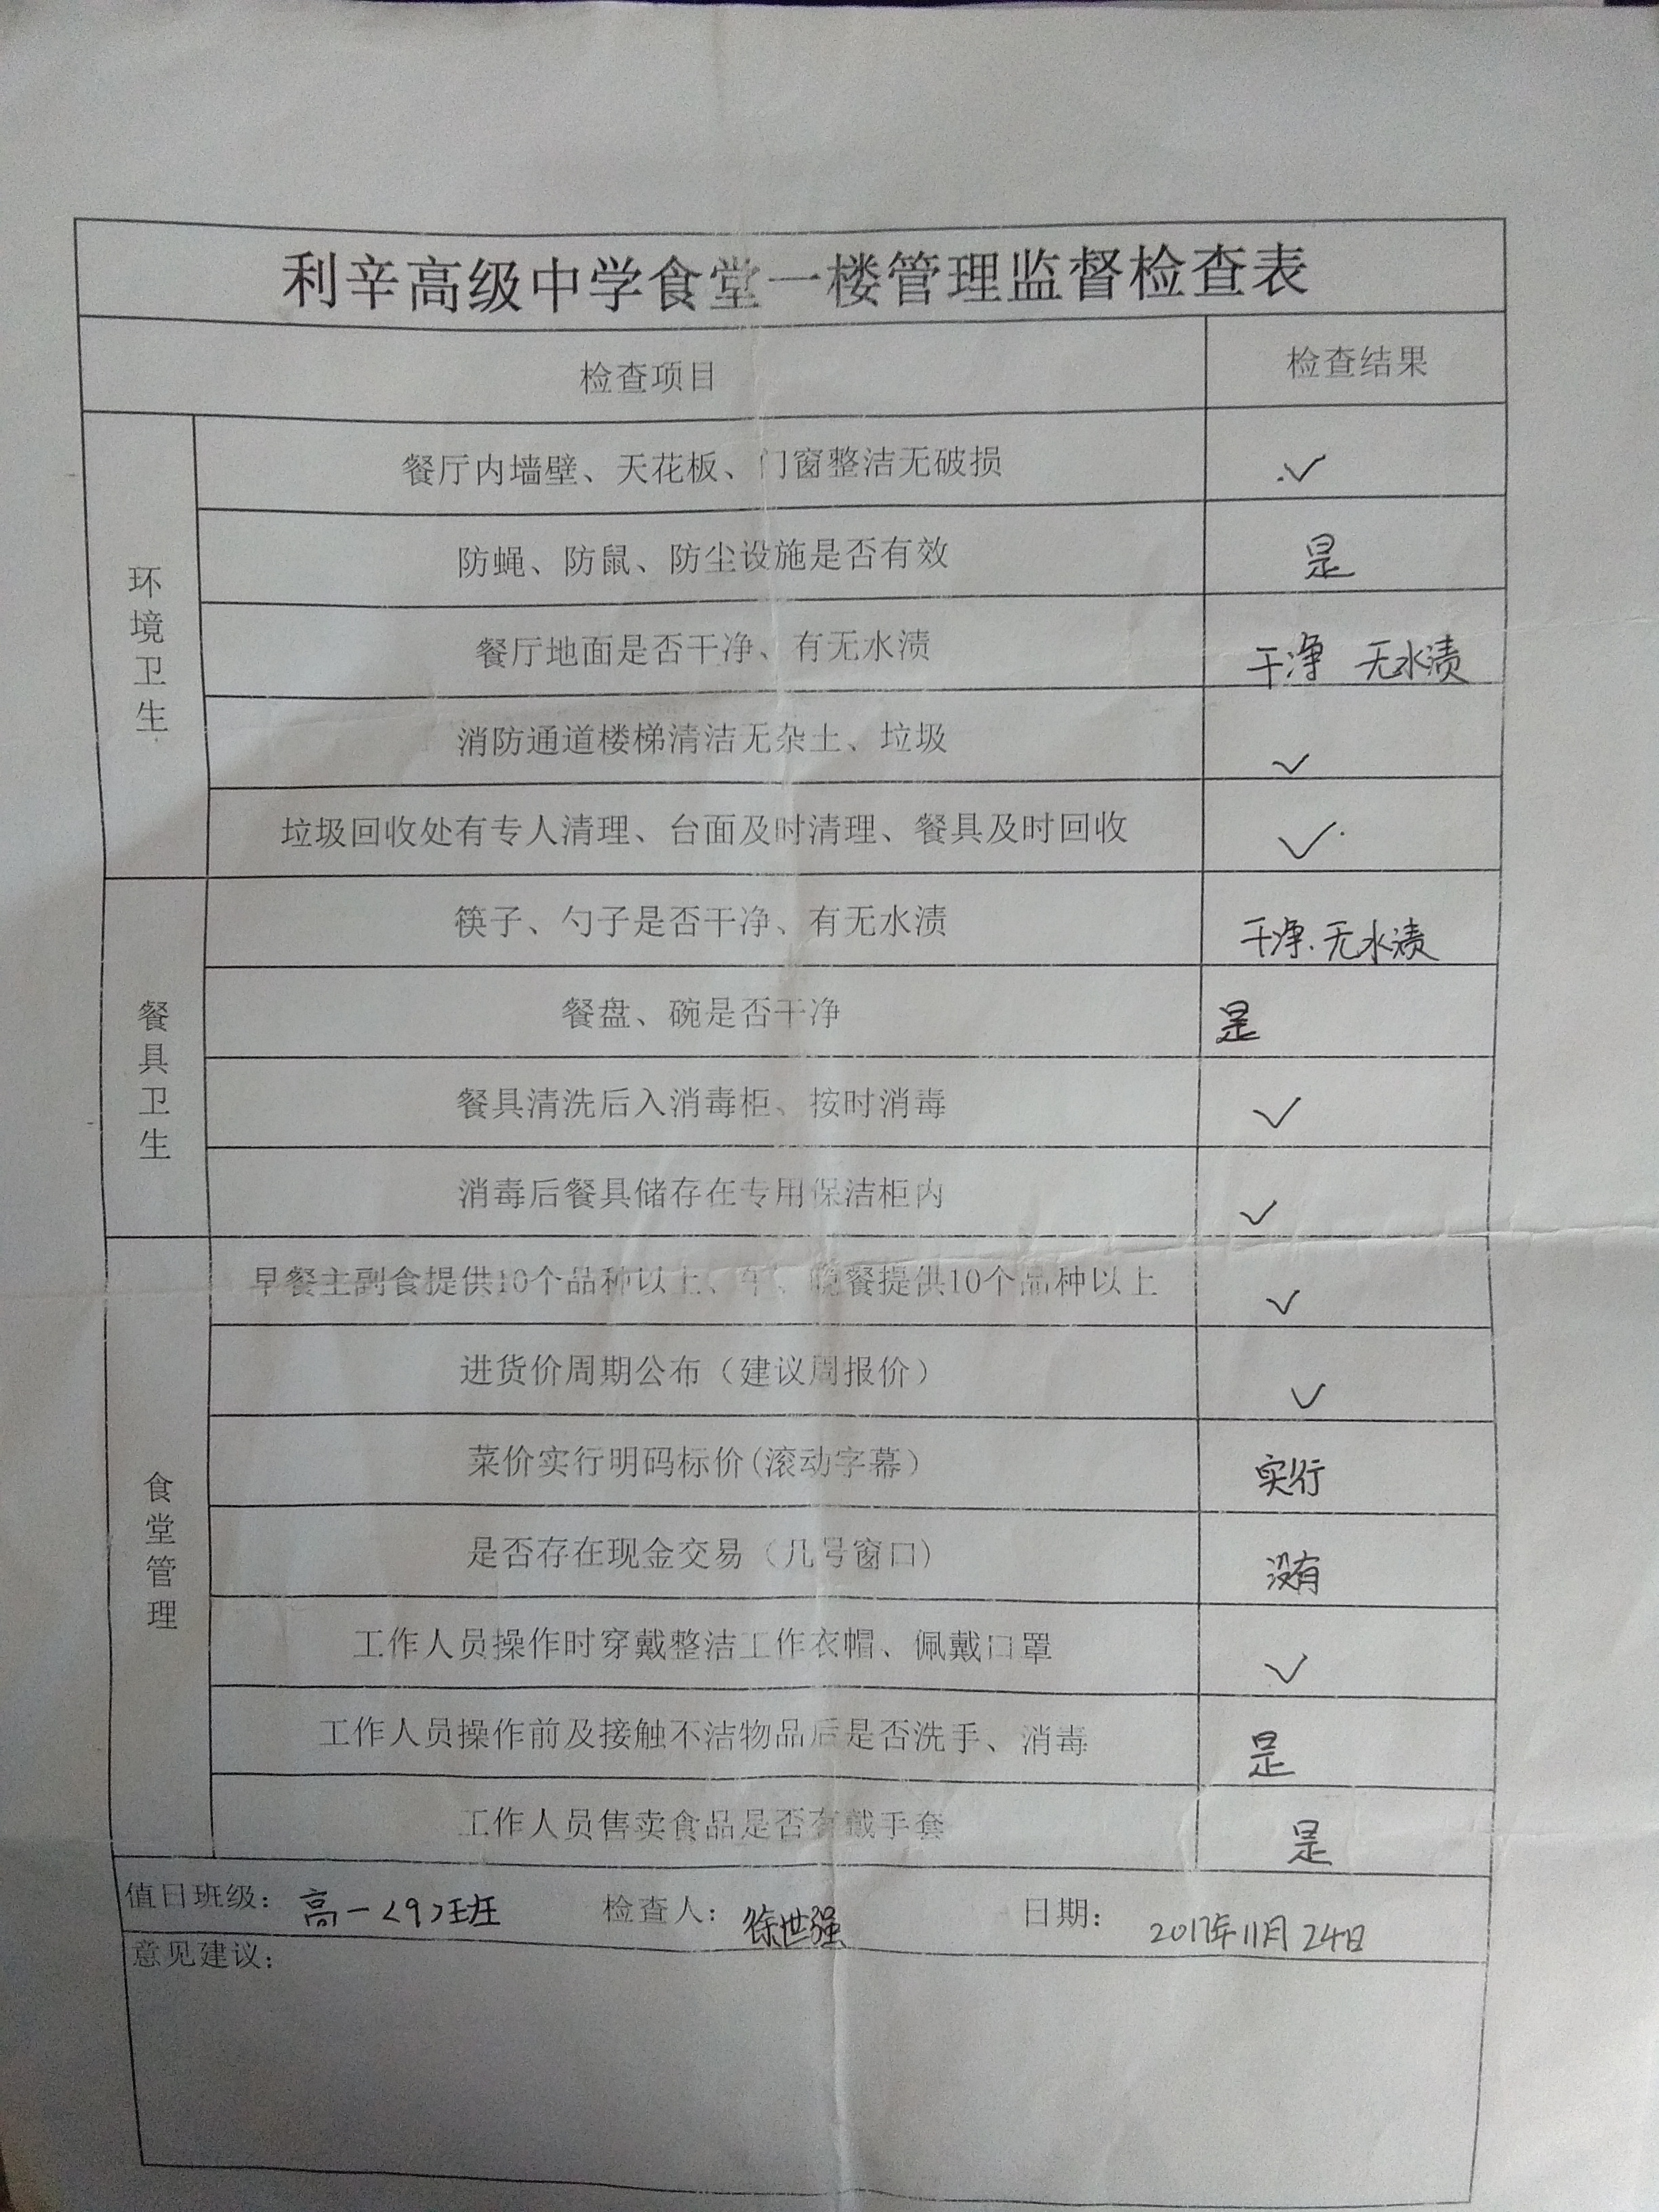 利辛高级中学食堂一楼管理监督检查表
检查项目 检查结果
环境卫生
餐厅内墙壁、天花板、门窗整洁无破损 ✓
防蝇、防鼠、防尘设施是否有效 是
餐厅地面是否干净、有无水渍 干净 无水渍
消防通道楼梯清洁无杂土、垃圾 ✓
垃圾回收处有专人清理、台面及时清理、餐具及时回收 ✓
餐具卫生
筷子、勺子是否干净、有无水渍 干净.无水渍
餐盘、碗是否干净 是
餐具清洗后入消毒柜、按时消毒 ✓
消毒后餐具储存在专用保洁柜内 ✓
食堂管理
早餐主副食提供10个品种以上、午、晚餐提供10个品种以上 ✓
进货价周期公布（建议周报价） ✓
菜价实行明码标价(滚动字幕） 实行
是否存在现金交易（几号窗口） 没有
工作人员操作时穿戴整洁工作衣帽、佩戴口罩 ✓
工作人员操作前及接触不洁物品后是否洗手、消毒 是
工作人员售卖食品是否有戴手套 是
值日班级：高一<9>班 检查人：徐世强 日期：2017年11月24日
意见建议：